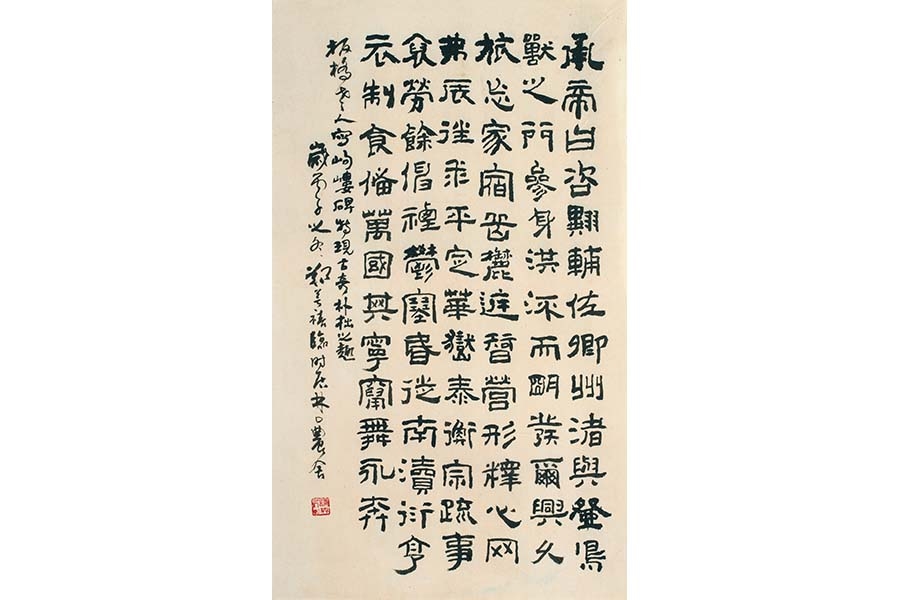 承帝曰咨翼輔佐卿州渚與登鳥
獸之門參身洪流而明發爾興久
旅忘家宿岳麓庭智營形釋心网
弗辰往求平定華嶽泰衡宗疏事
裒勞餘伸禋鬱塞昏徙南瀆衍亨
衣制食備萬國其寧竄舞永奔
板橋老人寫岣嶁碑特現古奇朴拙之趣
歲丙子之冬鄭善禧臨时居林口農舍